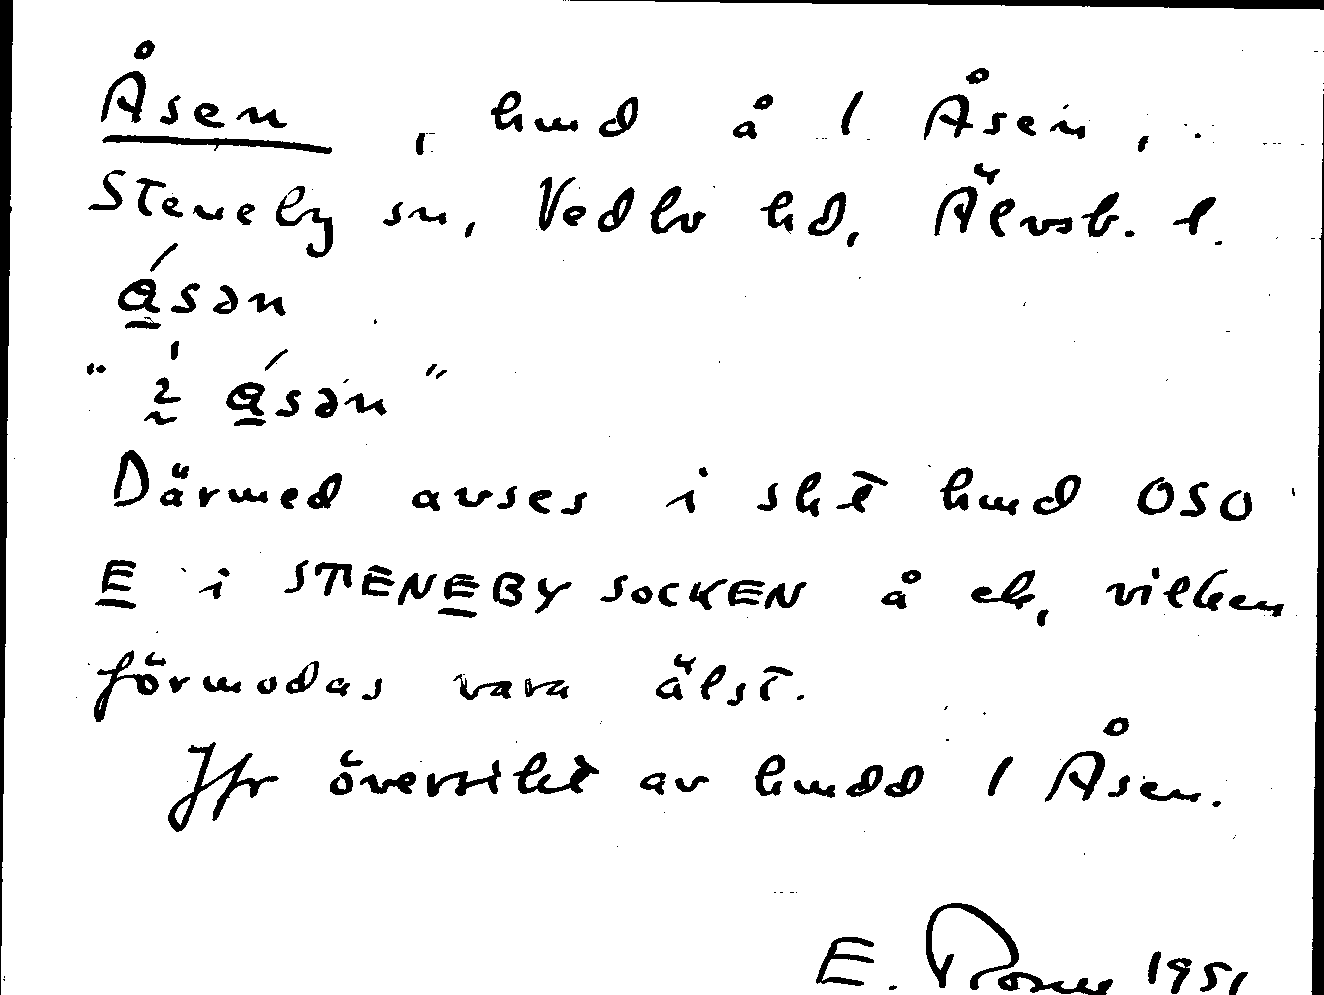 Åsen, hmd å 1 Åsen,
Steneby sn, Vedbo hd, Älvsb. l.
ɑ́sən
" ɑ́sən "
Därmed avses i skt hmd OSO
E i STENEBY SOCKEN å ek, vilken
förmodas vara älst.
Jfr översikt av hmdd 1 Åsen.
E. 1951